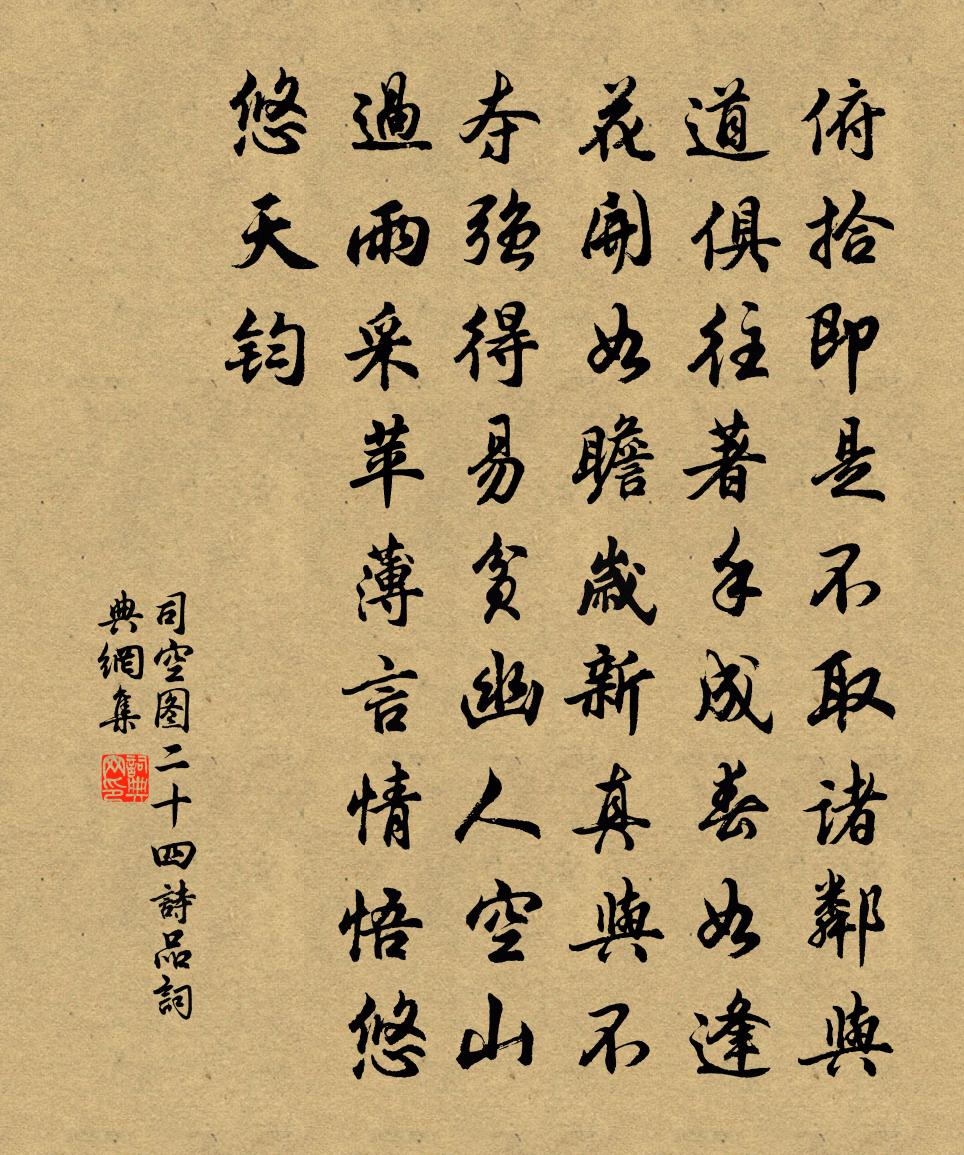 俯拾即是不取诸鄰與
道俱往著手成春如逢
花開如瞻歲新真與不
夺強得易貧幽人空山
過雨采苹薄言情悟悠
悠天钧
司空图二十四詩品詞
典網集
詞典网印